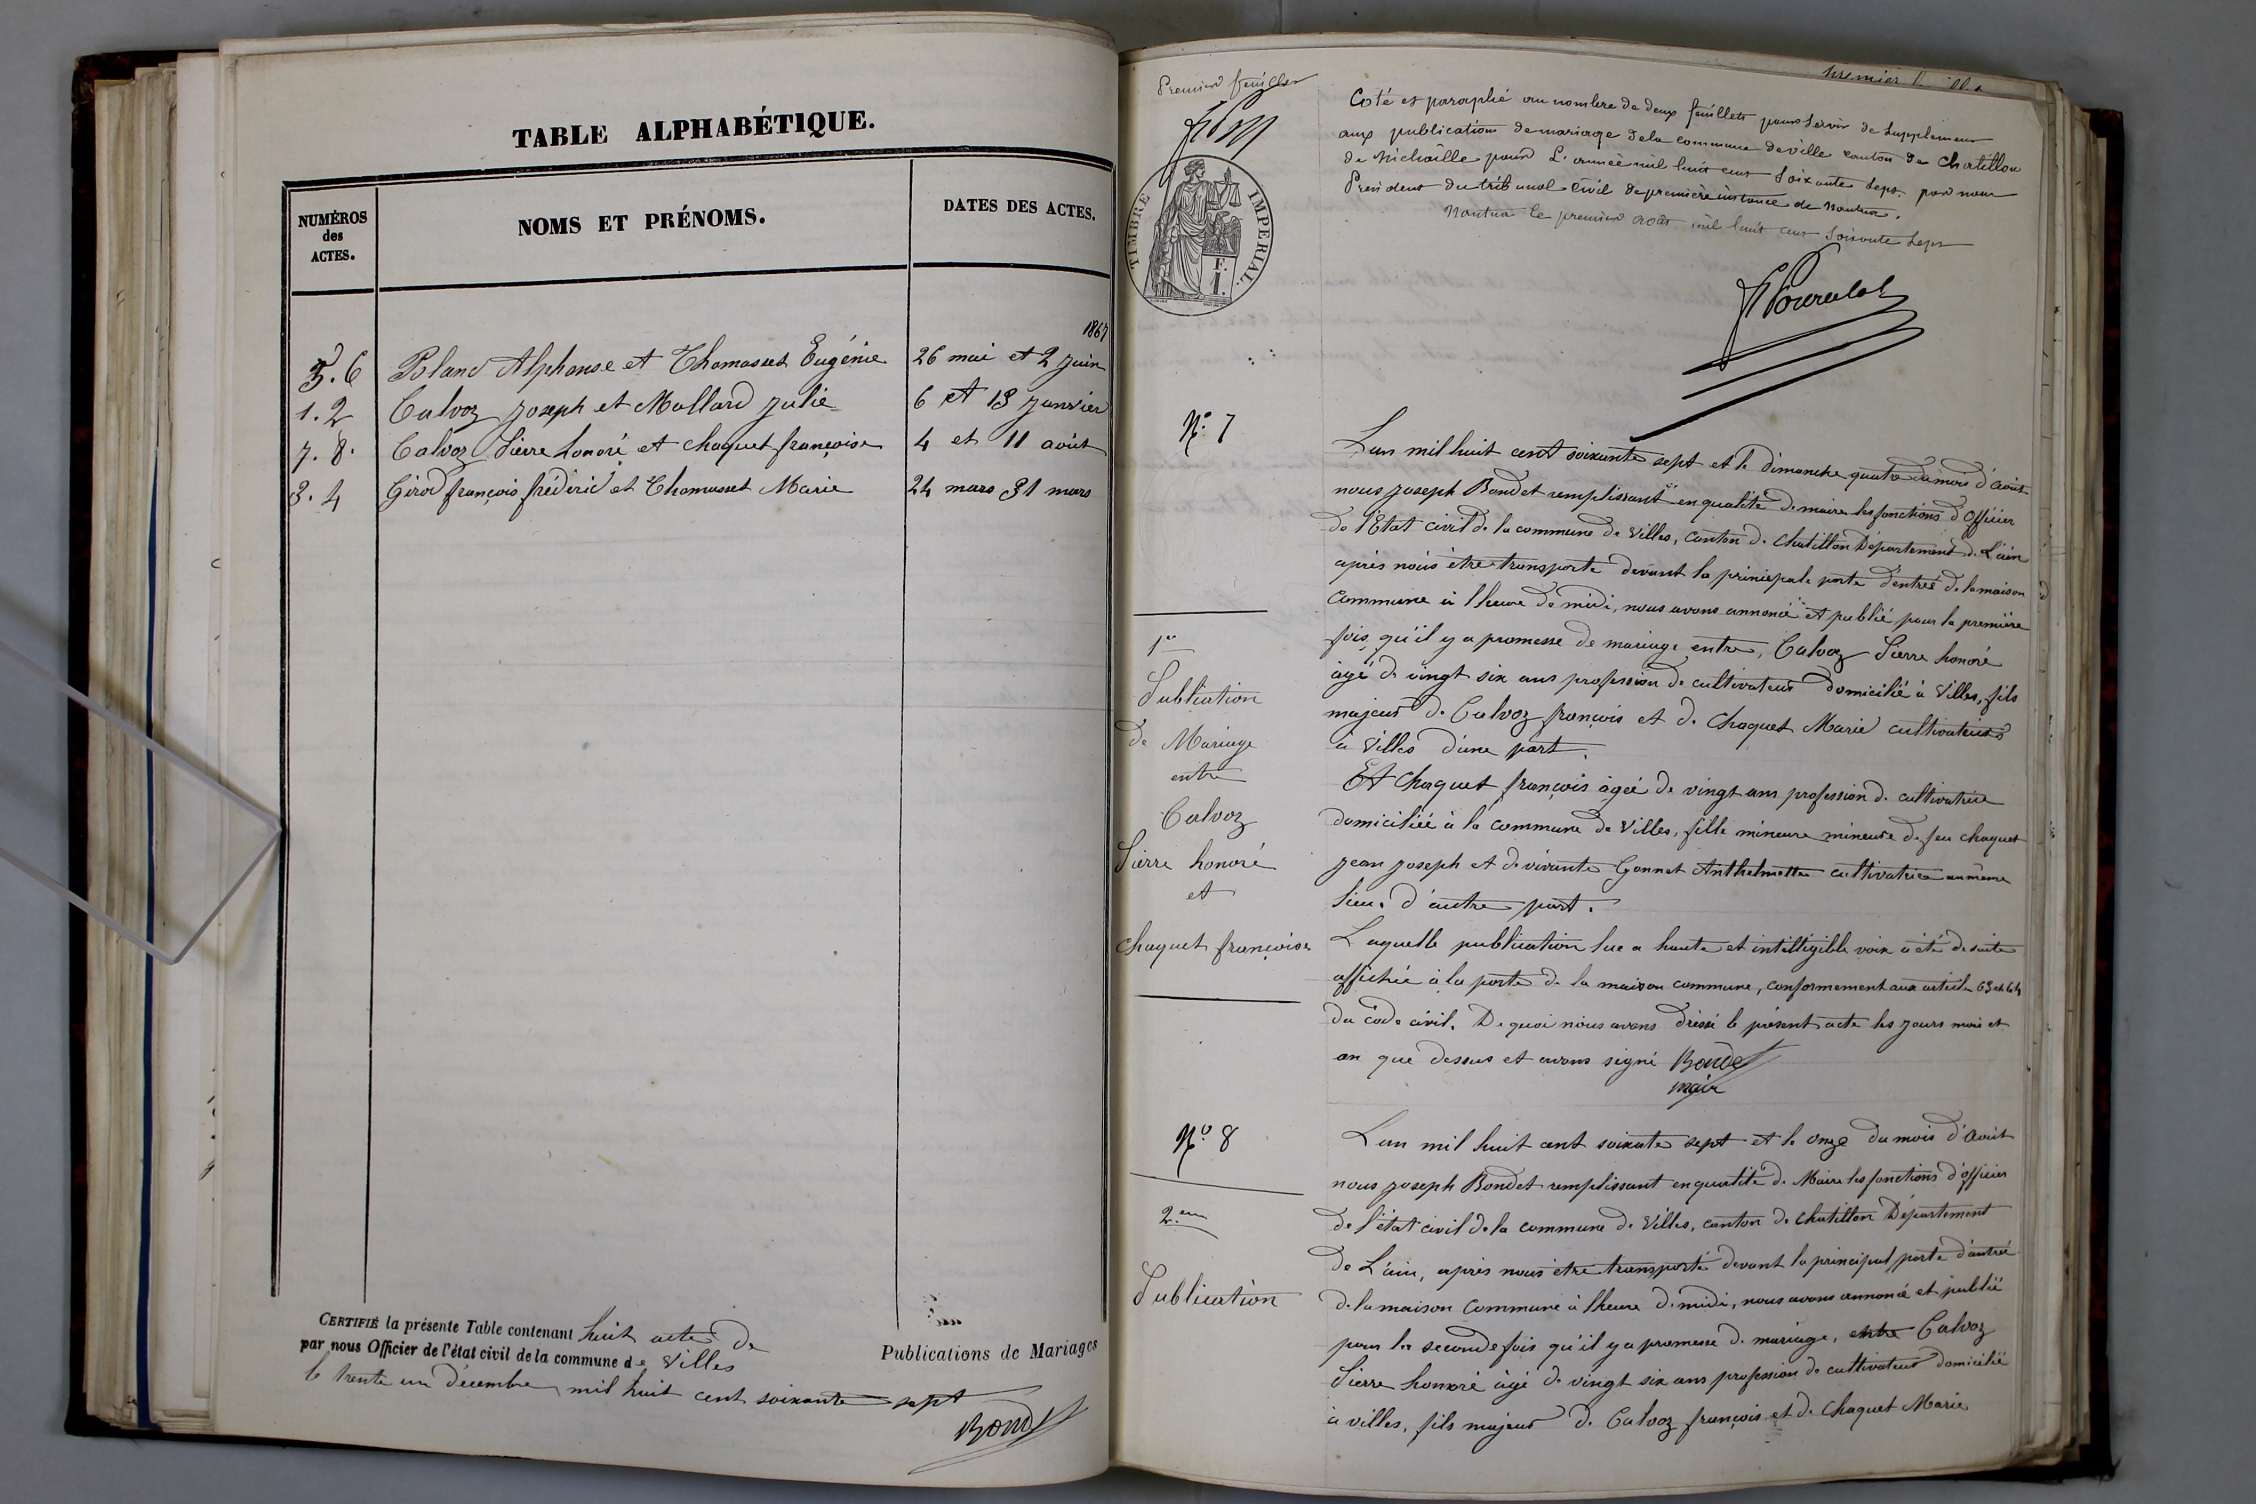 TABLE ALPHABÉTIQUE.
NUMÉROS
des
ACTES.
NOMS ET PRÉNOMS.
DATES DES ACTES.
1867
5. 6 Blanc Alphonse et Thomasset Eugénie 26 mai et 2 juin
1. 2 Calvoz Joseph et Mallard Julie 6 et 13 Janvier
7. 8. Calvoz Pierre honoré et Chaquet françoise 4 et 11 août
3. 4 Girod françois fréderic et Thomasset Marie 24 mars 31 mars
CERTIFIÉ la présente Table contenant huit actes de
Publications de Mariages
par nous Officier de l'état civil de la commune de Villes
le trente un décembre mil huit cent soixante sept
Bondet
Premier feuillet
TIMBRE IMPERIAL.
F.
I.
premier
Coté et paraphé au nombre de deux feuillets pour servir de supplement
aux publication de mariage de la commune de ville canton de Chatillon
de Michaille pour L'année mil huit cent soixante sept par nous
President du tribunal Civil de première instance de Nantua.
Nantua le premier août mil huit cent soixante sept
N.° 7
1er
Publication
de Mariage
entre
Calvoz
Pierre honoré
et
Chaquet françoise
L'an mil huit cent soixante sept et le dimanche quatre du mois d'Août
nous Joseph Bondet remplissant en qualité de maire les fonctions d'Officier
de l'Etat civil de la commune de Villes, canton de Chatillon Département de L'ain
après nous être transporte devant la principale porte d'entreé de la maison
Commune à l'heure de midi, nous avons annoncé et publié pour la première
fois, qu'il y a promesse de mariage entre, Calvoz Pierre honoré
âgé de vingt six ans profession de cultivateur domicilié à Villes, fils
majeur de Calvoz françois et de Chaquet Marie cultivateurs
à Villes d'une part.
Et Chaquet françois agée de vingt ans profession de cultivatrice
domiciliéé à la commune de Villes, fille mineure mineure de feu Chaquet
Jean Joseph et de vivante Gonnet Anthelmette cultivatrice au même
lieu. d'autre part.
Laquelle publication lue a haute et intelligible voix a été de suite
affichée à la porte de la maison commune, conformement aux article 63 et 64
du côde civil. De quoi nous avons dressé le présent acte les jours mois et
an que dessus et avons signé Bondet
maire
N.° 8
2.eme
Publication
L'an mil huit cent soixante sept et le onze du mois d'Août
nous Joseph Bondet remplissant en qualité de Maire les fonctions d'officier
de l'état civil de la commune de Villes, canton de Chatillon Département
de L'ain, après nous être transporté devant la principal porte d'entreé
de la maison Commune à l'heure de midi, nous avons annoncé et publié
pour la seconde fois qu'il y a promesse de mariage, entre Calvoz
Pierre honoré âgé de vingt six ans profession de cultivateur domicilié
à villes, fils majeur de Calvoz françois et de Chaquet Marie